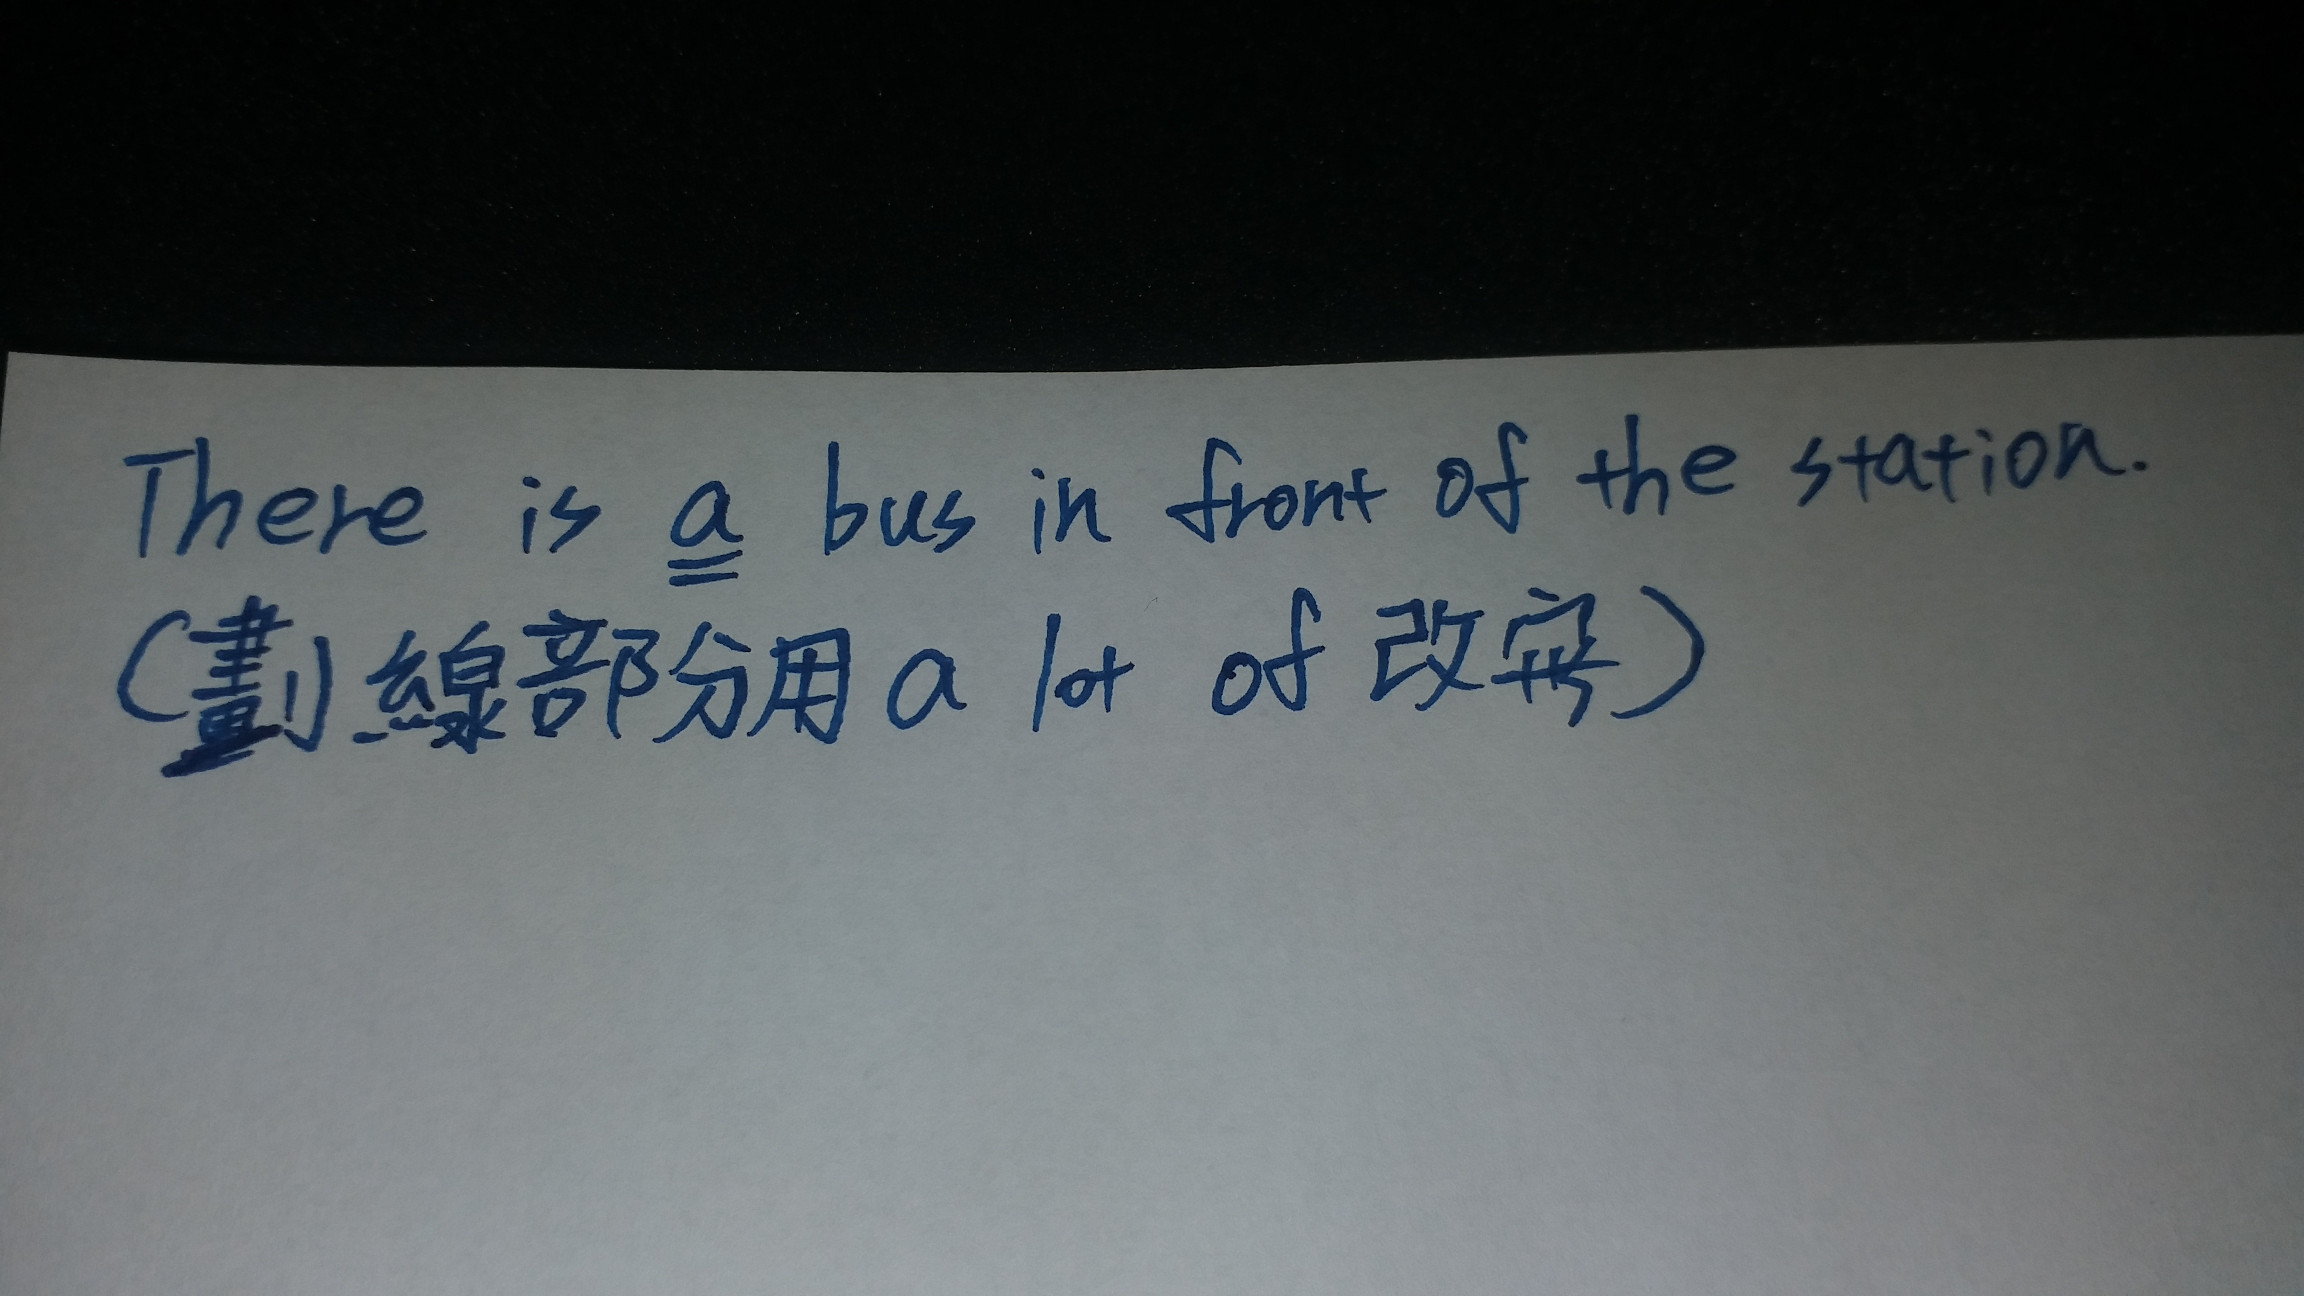 There is a bus in front of the station.
(劃線部分用 a lot of 改寫)